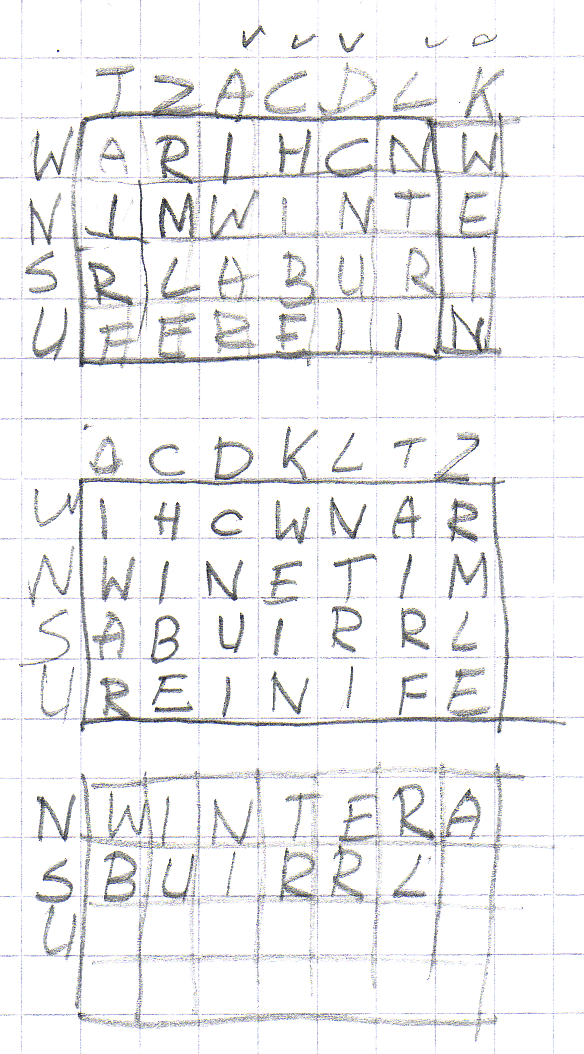 T Z A C D L K
W A R I H C N W
N I M W I N T E
S R L A B U R I
U F E R E I I N
A C D K L T Z
W I H C W N A R
N W I N E T I M
S A B U I R R L
U R E I N I F E
N W I N T E R A
S B U I R R L
U